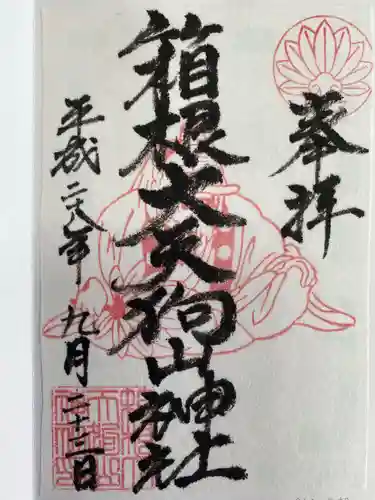 奉拝
箱根大天狗山神社
平成二十八年九月二十三日